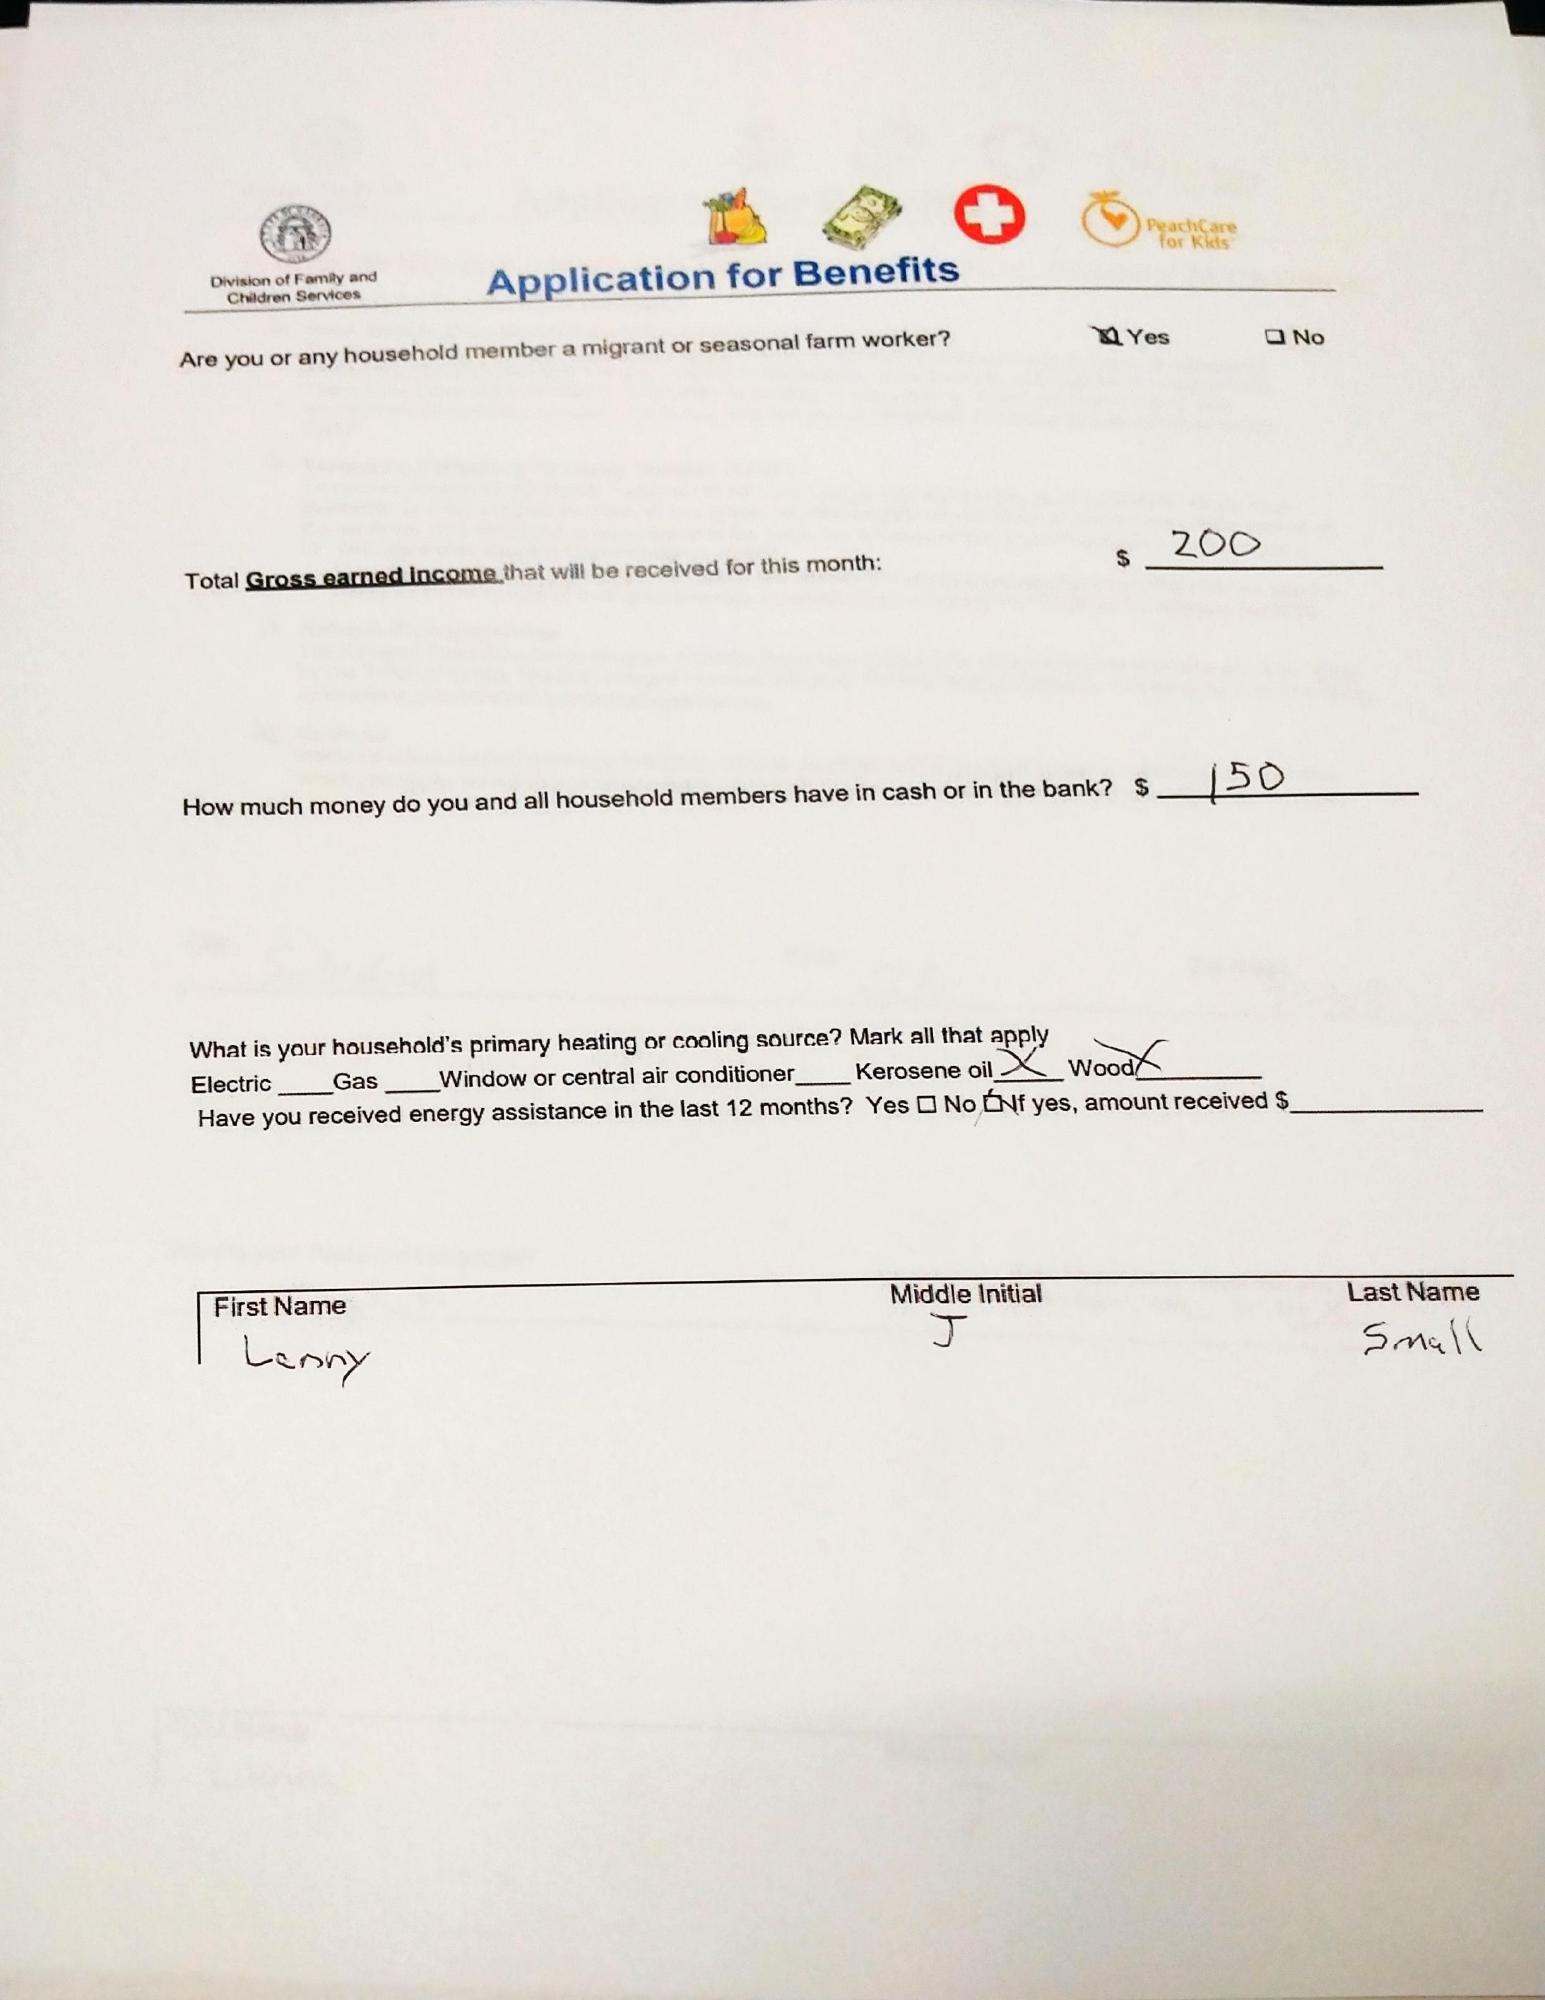 PeachCare
for Kids
Division of Family and
Children Services
Application for Benefits
Are you or any household member a migrant or seasonal farm worker? ☒ Yes ☐ No
Total Gross earned income that will be received for this month: $ 200
How much money do you and all household members have in cash or in the bank? $ 150
What is your household's primary heating or cooling source? Mark all that apply
Electric ____Gas ____Window or central air conditioner____ Kerosene oil X Wood X
Have you received energy assistance in the last 12 months? Yes ☐ No ☒ If yes, amount received $____
First Name Middle Initial Last Name
Lenny J Small